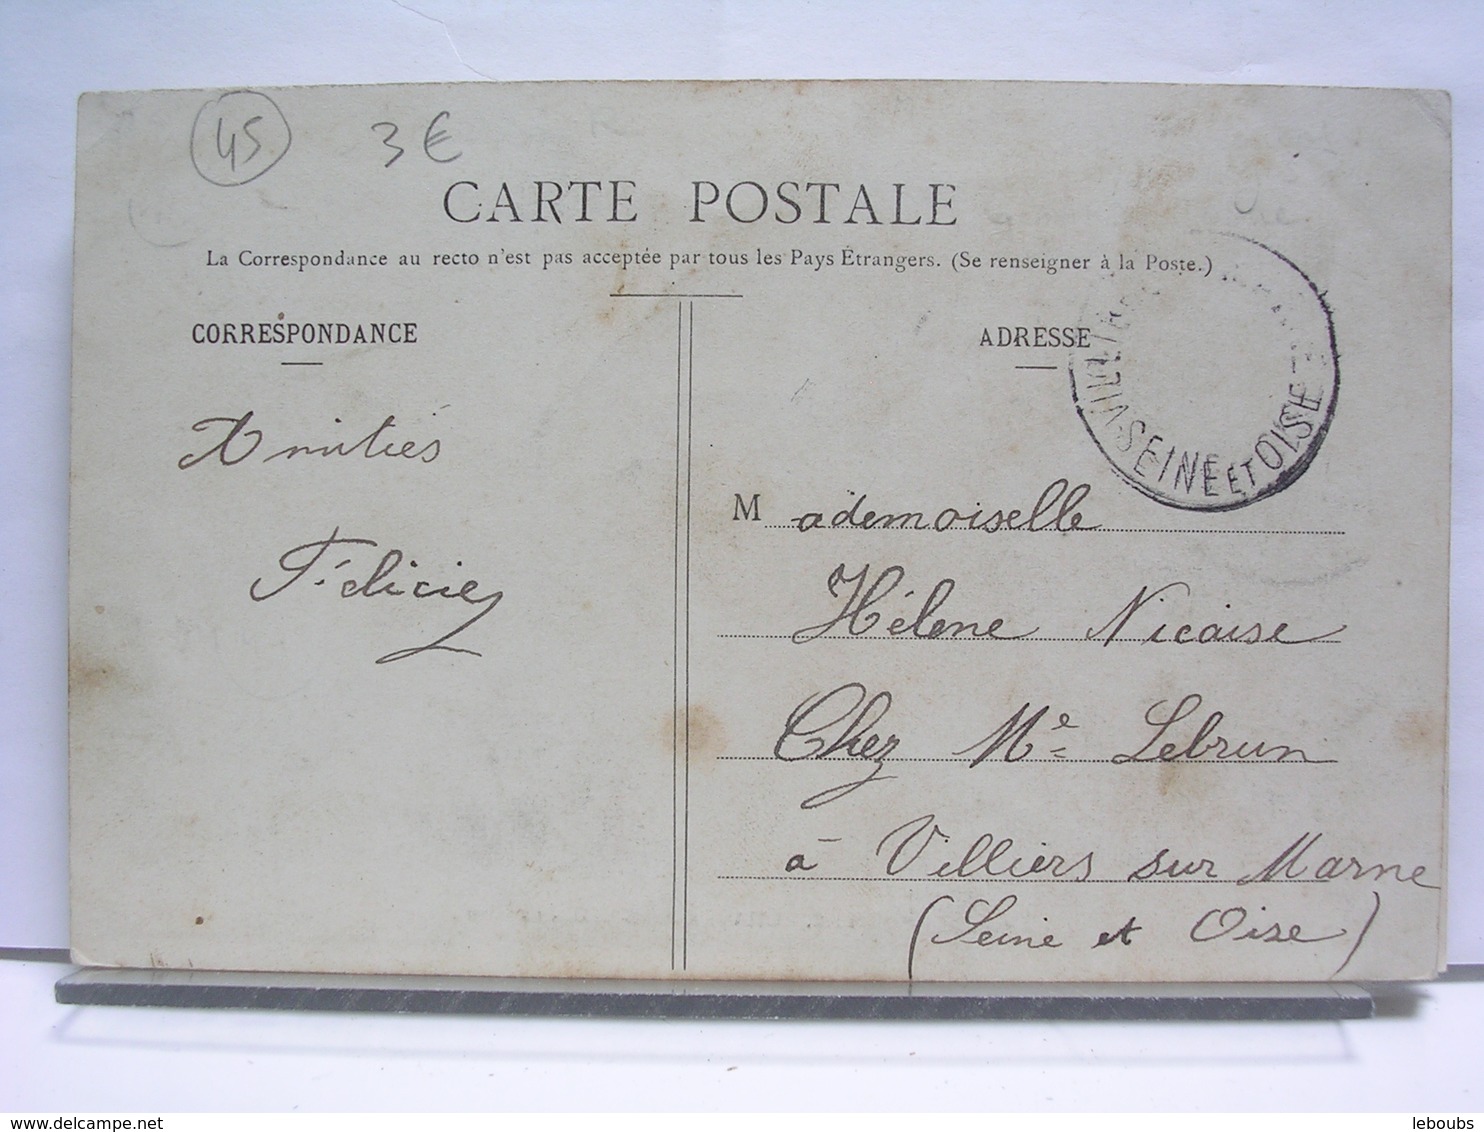 45
3 €
CARTE POSTALE
La Correspondance au recto n'est pas acceptée par tous les Pays Étrangers. (Se renseigner à la Poste.)
CORRESPONDANCE
ADRESSE
SEINE ET OISE
Amitiés
Félicie
Mademoiselle
Hélène Nicaise
Chez Me Lebrun
à Villiers sur Marne
(Seine et Oise)
delcampe.net
leboubs